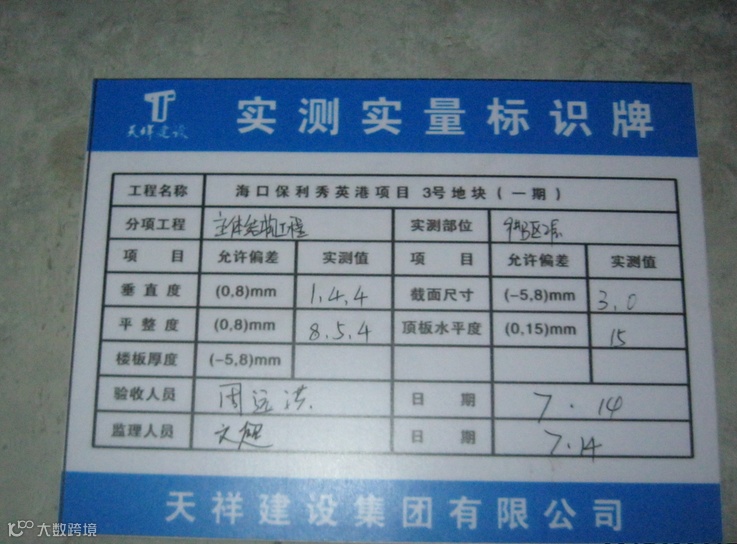 天祥建设
实测实量标识牌
工程名称 海口保利秀英港项目 3号地块（一期）
分项工程 主体结构工程 实测部位
项目 允许偏差 实测值 项目 允许偏差 实测值
垂直度 (0,8)mm 1、4、4 截面尺寸 (-5,8)mm 3、0
平整度 (0,8)mm 8、5、4 顶板水平度 (0,15)mm 15
楼板厚度 (-5,8)mm
验收人员 周远洪 日期 7.14
监理人员 日期 7.14
天祥建设集团有限公司
大数跨境